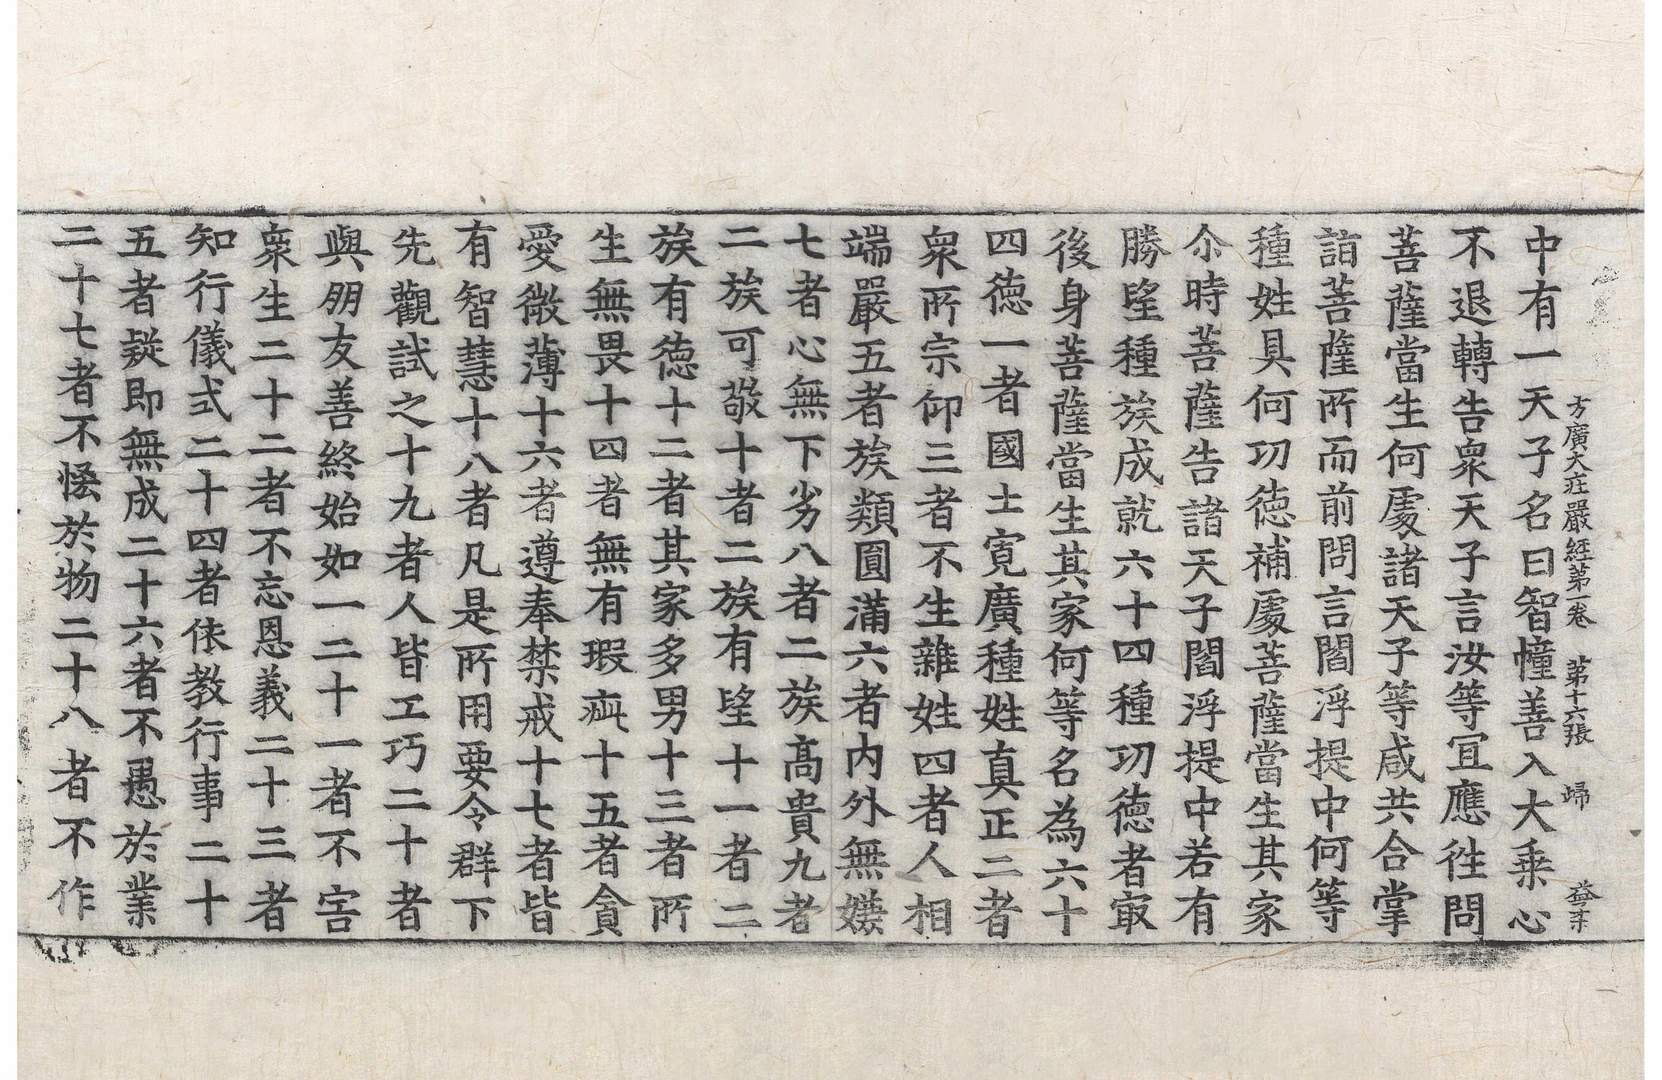 方廣大莊嚴經第一卷 第十六張 歸
中有一天子名曰智幢善入大乘心
不退轉告衆天子言汝等宜應往問
菩薩當生何處諸天子等咸共合掌
詣菩薩所而前問言閻浮提中何等
種姓具何功德補處菩薩當生其家
尒時菩薩告諸天子閻浮提中若有
勝望種族成就六十四種功德者㝡
後身菩薩當生其家何等名為六十
四德一者國土寬廣種姓真正二者
衆所宗仰三者不生雜姓四者人相
端嚴五者族類圓滿六者內外無嫌
七者心無下劣八者二族高貴九者
二族可敬十者二族有望十一者二
族有德十二者其家多男十三者所
生無畏十四者無有瑕疵十五者貪
愛微薄十六者遵奉禁戒十七者皆
有智慧十八者凡是所用要令群下
先觀試之十九者人皆工巧二十者
與朋友善終始如一二十一者不害
衆生二十二者不忘恩義二十三者
知行儀式二十四者依教行事二十
五者疑即無成二十六者不愚於業
二十七者不悋於物二十八者不作